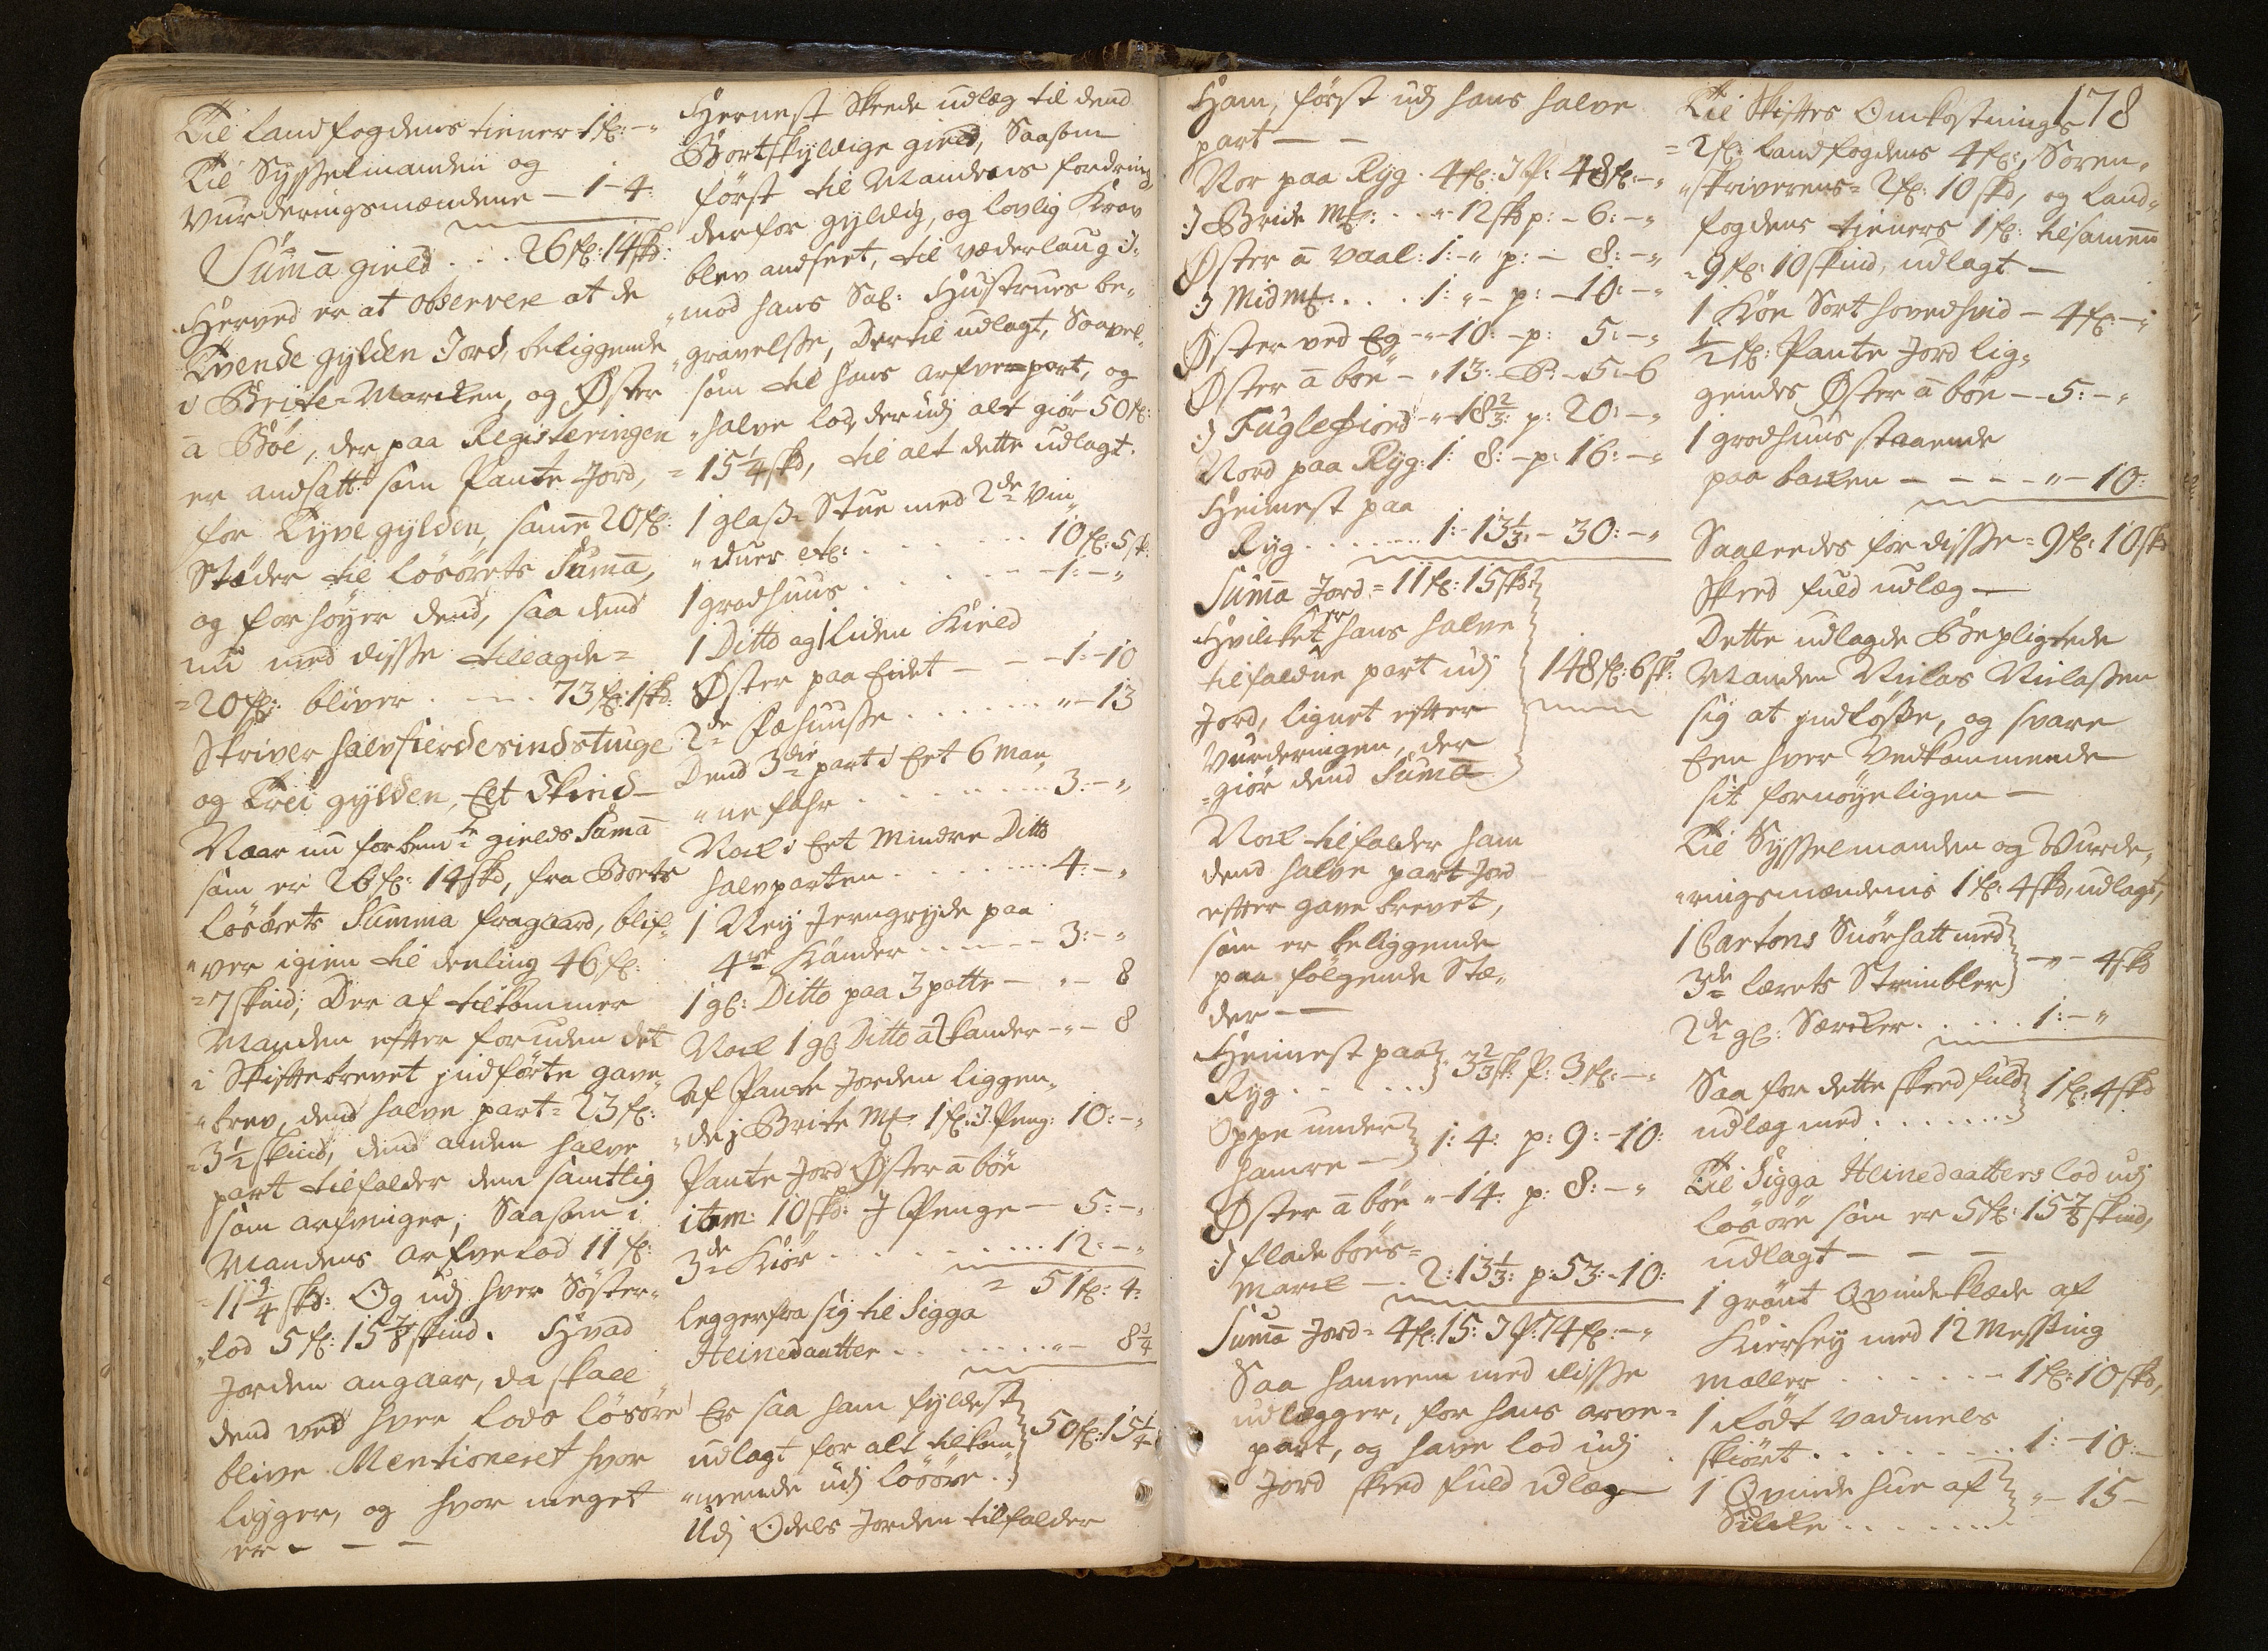 Til Landfogdens tiener 1 fl: - "
Til Sysselmanden og
Vurderingsmændene - 1 - 4:
Suma gield . . . 26 fl: 14 skd:
Herved er at observere at de
Tvende gylden Jord, beliggende
i Breite-Marcken, og Øster
a Böe, der paa Registeringen
er andsatt som Pante-Jord,
for Tyve gylden, samme 20 fl:
Støder til löösörets Suma,
og forhøyer dend, saa dend
nu med disse tillagde =
= 20 fl: bliver . . . 73 fl: 1 skd:
Skriver halvfierdesindstiuge
og Trei gylden, Et Skind -
Naar nu forbemte gields Suma
som er 26 fl: 14 skd, fra Boets
löösörets Summa fragaard, blif-
"ver igien til deeling 46 fl:
= 7 skind; Der af tilkommer
Manden efter foruden det
i Skiftebrevet jndförte gave-
"brev, dend halve part = 23 fl:
= 3½ skind, dend anden halve
part tilfalder dem samtlig
som arfvinger; Saasom i
Mandens arfvelod 11 fl:
= 11¾ skd: Og udj hver Söster-
"lod 5 fl: 15⅞ skind. Hvad
Jorden angaar, da skall
dend ved hver lods löösöre
blive Mentioneret hvor
ligger, og hvor meget
er - - -
Hernest Skeede udlæg til dend
Bortskyldige gield, Saasom
först til Mandens fordring
derfor gyldig, og lovlig Krav
blev andseet, til væderlaug i-
"mod hans Sal: Hustrues be-
"gravelsse, Dertil udlagt, Saavel-
som til hans arfvepart, og
"halve lod, der udj alt giör 50 fl:
= 15¼ skd, til alt dette udlagt.
1 glass-Stue med 2de Vin
"duer etc: . . . 10 fl: 5 sk:
1 groedhuus . . . - 1: - "
1 Ditto og 1 liden Kield
Øster paa Eidet - - - 1: - 10
2de Fæhuusse . . . " - 13
Dend 3die part i Eet 6 Man
"ne fahr . . . 3: - "
Nock i Eet Mindre Ditto
halvparten . . . 4: - "
1 Ney Jerngryde paa
4re Kander . . . 3: - "
1 gl: Ditto paa 3 potte - " - 8
Nock 1 gl: Ditto a 2 kander - " - 8
Af Pante Jorden liggen-
"de j Breite Mk 1 fl: J Peng: 10: - "
Pante Jord Øster a böe
item: 10 skd: J Penge - 5: - "
3de Kiör . . . 12: - "
= 51 fl: 4:
legger fra sig til Sigga
Heinedaatter . . . " - 8¾
Er saa ham fyldest
udlagt for alt tilkom-
"mende udj löösöre . . 50 fl: 15¼
Udj Odels Jorden tilfalder
178
Ham, först udj hans halve
part - -
Nor paa Ryg . 4 fl: J P: 48 fl: - "
J Breide Mk: . . " - 12 skd p: - 6: - "
Øster a Vaal: 1: - " p: - 8: - "
J Mid Mk: . . . 1: " - p: - 10: - "
Øster ved Eg - " - 10: - p: 5: - "
Øster a böe - " 13: - P: - 5: - 6
J Fuglefiord - " - 18⅔: p: 20: - "
Nord paa Ryg: 1: 8: - p: 16: - "
Heimest paa
Ryg . . . 1: - 13⅓: - 30: - "
Suma Jord = 11 fl: 15 skd:
Hvilcket er hans halve
tilfaldne part udj
Jord, lignet efter
Vurderingen, der
= giör dend Suma
148 fl: 6 sk:
Nock tilfalder ham
dend halve part Jord
efter gave brevet,
som er beliggende
paa fölgende Stæ-
der - -
Heimest paa
Ryg . . . 3⅔ sk: P: 3 fl: - "
Oppe under
hamre - 1: 4: p: 9: - 10:
Øster a böe " - 14: p: 8: - "
J flade böes =
Marck - . 2: 13⅓: p: 53: - 10:
Suma Jord = 4 fl: 15: J P: 74 fl: - "
Saa hannem med disse
udlægger, for hans arve =
part, og halve lod udj
Jord skeed fuld udlæg -
Til Skiftes Omkostninge
= 2 fl: Landfogdens 4 fl:, Soren-
"skriverens = 2 fl: 10 skd, og Land-
fogdens tieners 1 fl: tilsamen
= 9 fl: 10 skind, udlagt -
1 Köe Sort hovedhvid - 4 fl: - "
½ fl: Pante Jord lig-
gendes Øster a böe - - 5: - "
1 groedhuus staaende
paa backen - - - - " - 10:
Saaleedes for disse = 9 fl: 10 skd
Skeed fuld udlæg -
Dette udlagde Bepligtede
Manden Niclas Niclassen
sig at jndlösse, og svare
Een hver Vedkommende
sit fornöyeligen -
Til Sysselmanden og Vurde-
"ringsmændenis 1 fl: 4 skd, udlagt,
1 Cartons Snörhatt med
3de lærets Strimbler - " - 4 skd
2de gl: Særcker . . . 1: - "
Saa for dette skeed fuld
udlæg med . . . 1 fl: 4 skd
Til Sigga Heinedaatters lod udj
löösöre som er 5 fl: 15⅞ skind,
udlagt - - -
1 grönt Qvindeklæde af
Kiersey med 12 Messing
Maller . . . 1 fl: 10 skd,
1 Rödt Vadmels
skiört . . . 1: - 10: -
1 Qvinde hue af
Silcke . . . " - 15 -